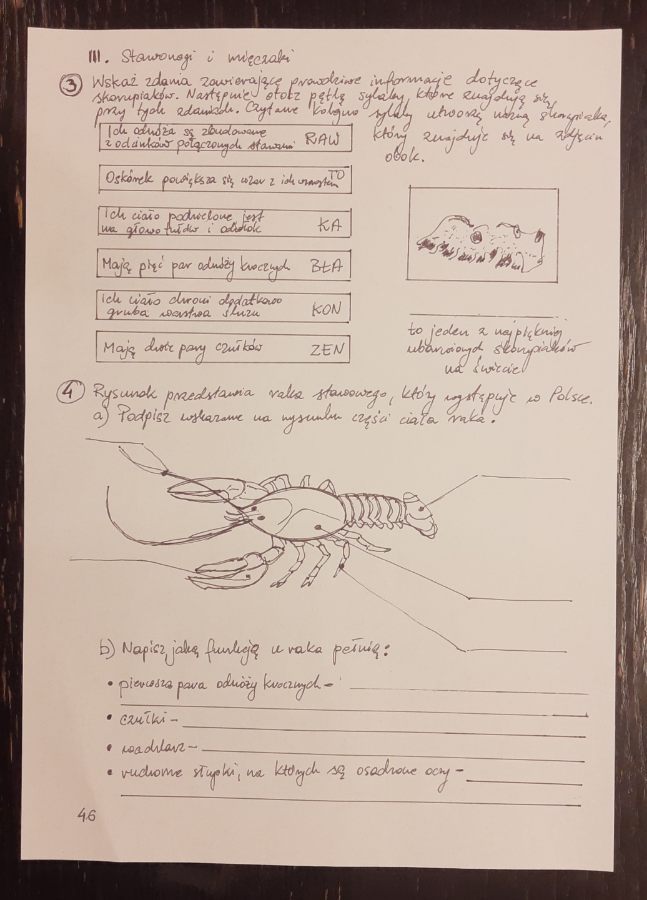 III. Stawonogi i mięczaki
3 Wskaż zdania zawierające prawdziwe informacje dotyczące
skorupiaków. Następnie otocz pętlą sylaby, które znajdują się
przy tych zdaniach. Czytane kolejno sylaby utworzą nazwę skorupiaka,
który znajduje się na zdjęciu
obok.
Ich odnóża są zbudowane
z odcinków połączonych stawami RAW
Oskórek powiększa się wraz z ich wzrostem TO
Ich ciało podzielone jest
na głowotułów i odwłok KA
Mają pięć par odnóży krocznych BŁA
Ich ciało chroni dodatkowo
gruba warstwa śluzu KON
Mają dwie pary czułków ZEN
to jeden z najpiękniej
ubarwionych skorupiaków
na świecie
4 Rysunek przedstawia raka stawowego, który występuje w Polsce.
a) Podpisz wskazane na rysunku części ciała raka.
b) Napisz, jaką funkcję u raka pełnią:
• pierwsza para odnóży krocznych –
• czułki –
• wachlarz –
• ruchome słupki, na których są osadzone oczy –
46